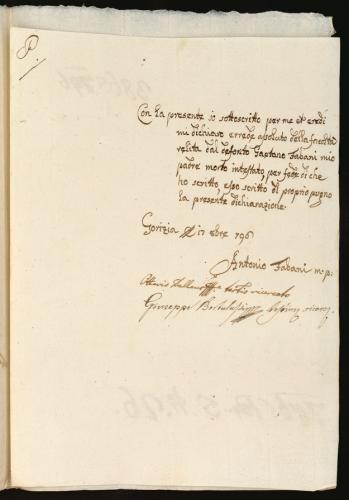 P
Con la presente io sottoscritto per me et eredi
mi dichiaro errede absoluto della Eredità
relita dal defonto Gaetano Fabani mio
padre morto intestato, per fede di che
ho scritto, e sotto scritto di proprio pugno
la presente dichiarazione
Gorizia li 17 796
Antonio Fabani m.p.
testis ricercato
Giuseppe